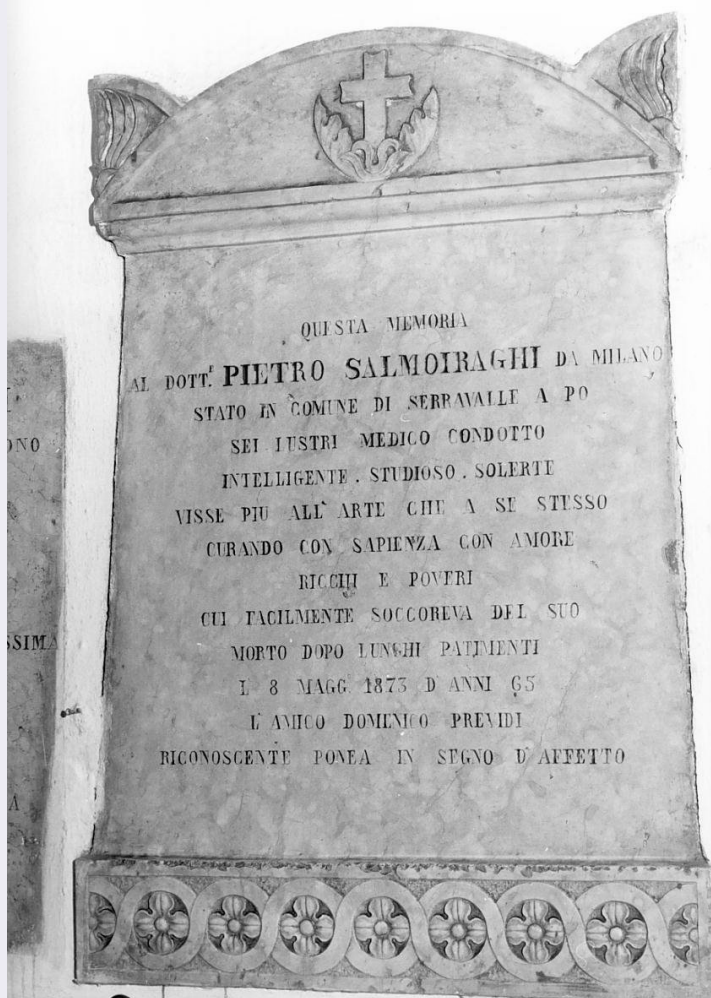 QUESTA MEMORIA
AL DOTT.R PIETRO SALMOIRAGHI DA MILANO
STATO IN COMUNE DI SERRAVALLE A PO
SEI LUSTRI MEDICO CONDOTTO
INTELLIGENTE . STUDIOSO . SOLERTE
VISSE PIU ALL' ARTE CHE A SE STESSO
CURANDO CON SAPIENZA CON AMORE
RICCHI E POVERI
CUI FACILMENTE SOCCOREVA DEL SUO
MORTO DOPO LUNGHI PATIMENTI
L 8 MAGG. 1873 D' ANNI 65
L' AMICO DOMENICO PREVIDI
RICONOSCENTE PONEA IN SEGNO D' AFFETTO